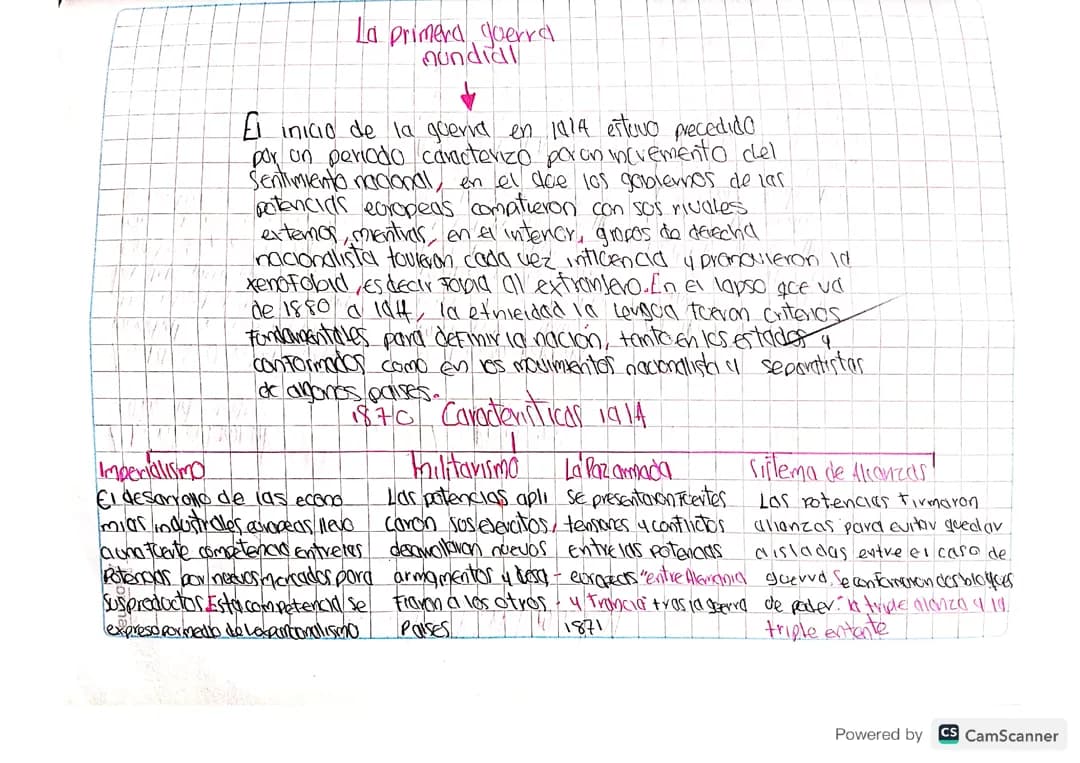 La primera guerra
mundial
El inicio de la guerra en 1914 estuvo precedido
por un periodo caracterizo por un incremento del
sentimiento nacional, en el que los gobiernos de las
potencias europeas comatieron con sus rivales
externos, mientras, en el interior, grupos de derecha
nacionalista tuvieron cada vez influencia y promovieron la
xenofobia, es decir fobia al extranjero. En el lapso que va
de 1880 a 1914, la etnicidad la lengua fueron criterios
fundamentales para definir la nación, tanto en los estados y
conformados como en los movimientos nacionalista y separatistas
de algunos países.
1870 Características 1914
Imperialismo
El desarrollo de las econo
mias industriales europeas, llevo
a una fuerte competencia entre las
Potencias por nuevos mercados para
sus productos Esta competencia se
expreso por medio de
Militarismo
Las potencias apli
caron sus ejercitos,
desarrollaron nuevos
armamentos y desa-
fiaron a los otros
Paises
La Paz armada
Se presentaron fuertes
tensiones y conflictos
Entre las potencias
europeas "entre Alemania
y Francia" tras la guerra
1871
Sistema de Alianzas
Las potencias firmaron
alianzas para evitar quedar
aisladas entre el caso de
guerra. Se conformaron dos bloques
de poder: la triple alianza y la
triple entente
Powered by CS CamScanner